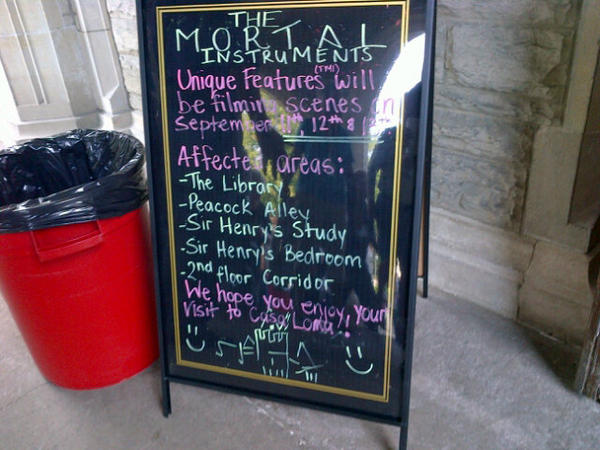 THE
MORTAL
INSTRUMENTS
Unique Features (TMI) will
be filming scenes on
September 11th, 12th & 13th
Affected areas:
-The Library
-Peacock Alley
-Sir Henry's Study
-Sir Henry's Bedroom
-2nd floor Corridor
We hope you enjoy your
visit to Casa Loma!